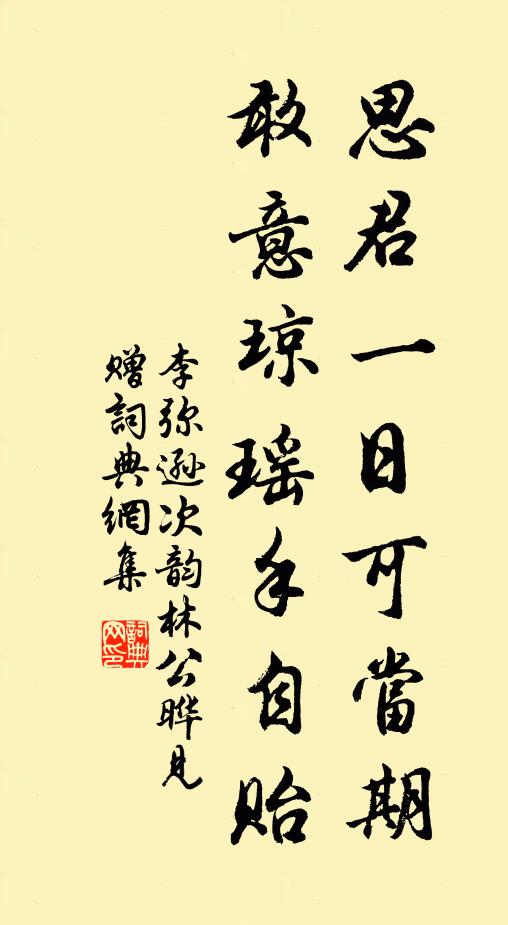 思君一日可當期
敢意琼瑶手自貽
李弥遜次韵林公晔見
赠詞典網集
詞典網印